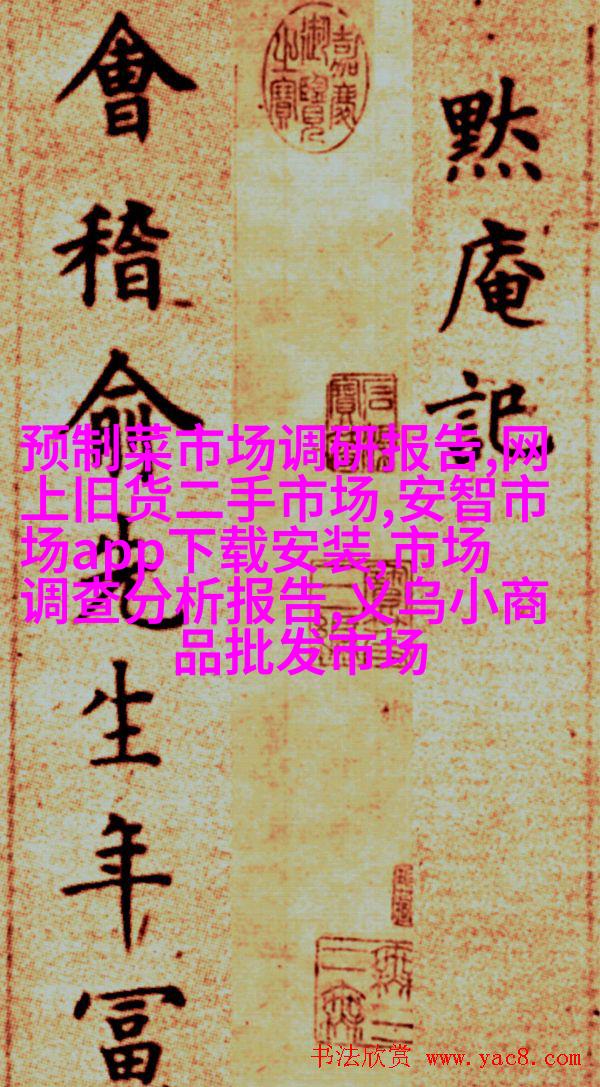 默庵記
嘉慶御覽之寶
會稽俞先生年富
预制菜市场调研报告,网
上旧货二手市场,安智市
场app下载安装,市场
调查分析报告,义乌小商
品批发市场
书法欣赏 www.yac8.com